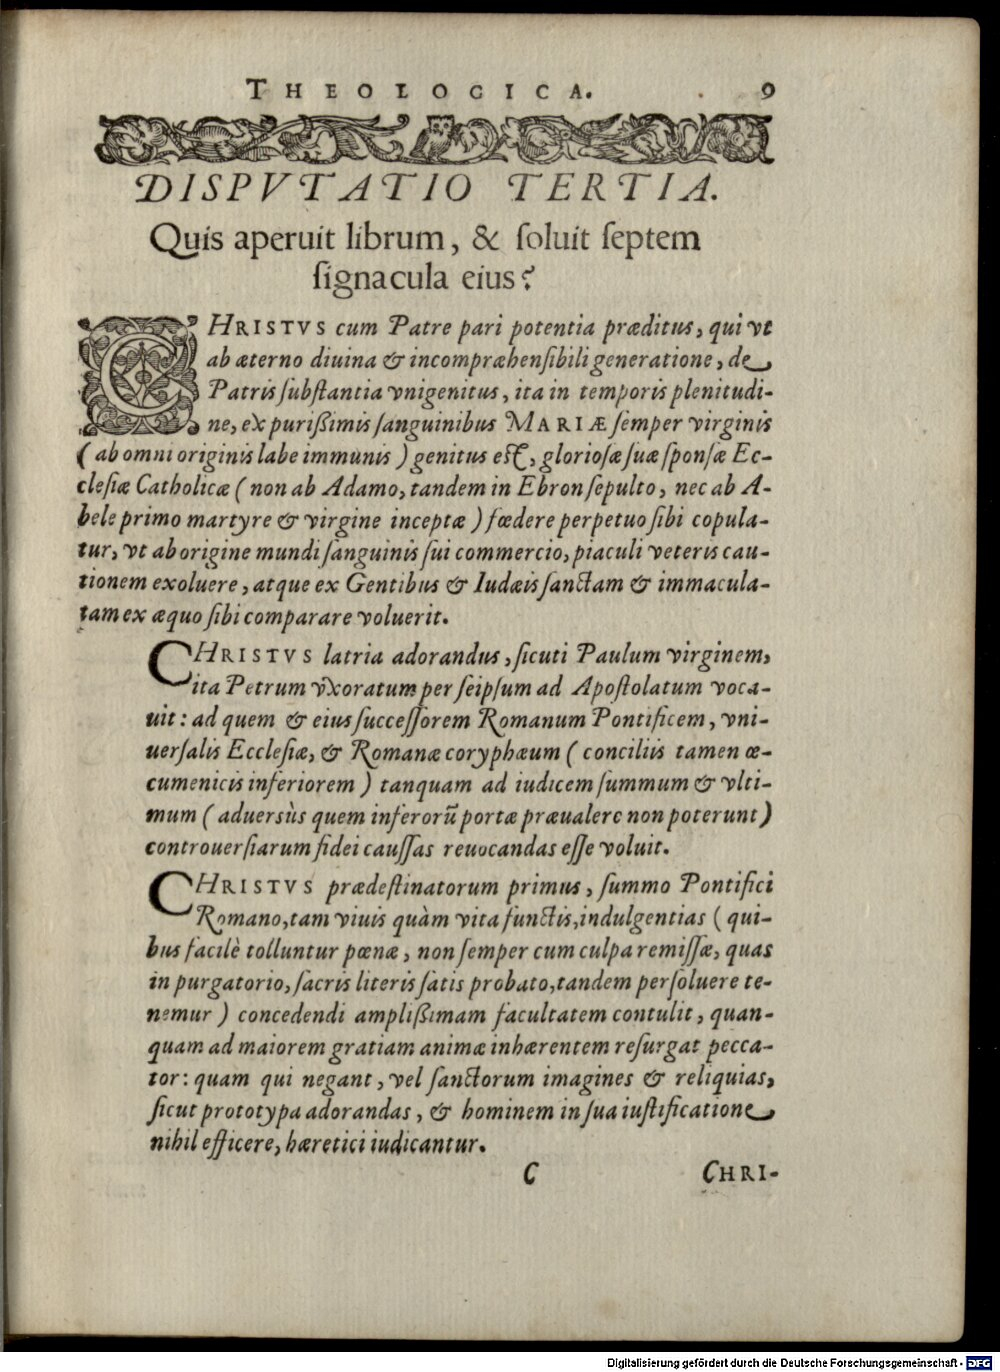 THEOLOGICA. 9
DISPVTATIO TERTIA.
Quis aperuit librum, & ſoluit ſeptem
ſignacula eius?
CHRISTVS cum Patre pari potentia præditus, qui vt
ab æterno diuina & incompræhenſibili generatione, de
Patris ſubſtantia vnigenitus, ita in temporis plenitudi-
ne, ex purißimis ſanguinibus MARIÆ ſemper virginis
(ab omni originis labe immunis) genitus eſt, glorioſæ ſuæ ſponſæ Ec-
cleſiæ Catholicæ (non ab Adamo, tandem in Ebron ſepulto, nec ab A-
bele primo martyre & virgine inceptæ) fœdere perpetuo ſibi copula-
tur, vt ab origine mundi ſanguinis ſui commercio, piaculi veteris cau-
tionem exoluere, atque ex Gentibus & Iudæis ſanctam & immacula-
tam ex æquo ſibi comparare voluerit.
CHRISTVS latria adorandus, ſicuti Paulum virginem,
ita Petrum vxoratum per ſeipſum ad Apoſtolatum voca-
uit: ad quem & eius ſucceſſorem Romanum Pontificem, vni-
uerſalis Eccleſiæ, & Romanæ coryphæum (conciliis tamen œ-
cumenicis inferiorem) tanquam ad iudicem ſummum & vlti-
mum (aduersùs quem inferorū portæ præualere non poterunt)
controuerſiarum fidei cauſſas reuocandas eſſe voluit.
CHRISTVS prædeſtinatorum primus, ſummo Pontifici
Romano, tam viuis quàm vita functis, indulgentias (qui-
bus facilè tolluntur pœnæ, non ſemper cum culpa remiſſæ, quas
in purgatorio, ſacris literis ſatis probato, tandem perſoluere te-
nemur) concedendi amplißimam facultatem contulit, quan-
quam ad maiorem gratiam animæ inhærentem reſurgat pecca-
tor: quam qui negant, vel ſanctorum imagines & reliquias,
ſicut prototypa adorandas, & hominem in ſua iuſtificatione
nihil efficere, hæretici iudicantur.
C CHRI-
Digitalisierung gefördert durch die Deutsche Forschungsgemeinschaft - DFG